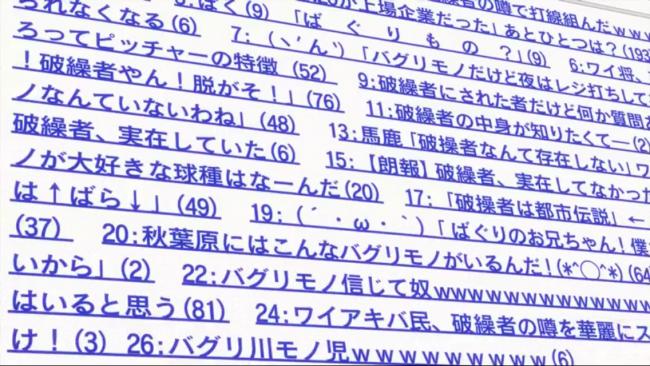 者の噂で打線組んだｗｗｗ
が上場企業だった」あとひとつは？(193
られなくなる(6)
ぼく(9) 「ば　ぐ　り　も　の　？」(9) 6:ワイ将、
ろってピッチャーの特徴 (52) 7:（ヽ´ん`)「バグリモノだけど夜はレジ打ちして
！破繰者やん！脱がそ！」(76) 9:破繰者にされた者だけど何か質問
ノなんていないわね」(48) 11:破繰者の中身が知りたくてー(2)
破繰者、実在していた(6) 13:馬鹿「破操者なんて存在しない」ワ
ノが大好きな球種はなーんだ(20) 15:【朗報】破繰者、実在してなかった
は↑ばら↓」(49) 17:「破操者は都市伝説」←
(37) 19:（´・ω・｀)「ばぐりのお兄ちゃん！僕
20:秋葉原にはこんなバグリモノがいるんだ！(*^◯^*) (64
いから」(2) 22:バグリモノ信じて奴wwwwwwwwwwww
はいると思う(81) 24:ワイアキバ民、破繰者の噂を華麗にス
け！(3) 26:バグリ川モノ児ｗｗｗｗｗｗｗｗｗ(6)